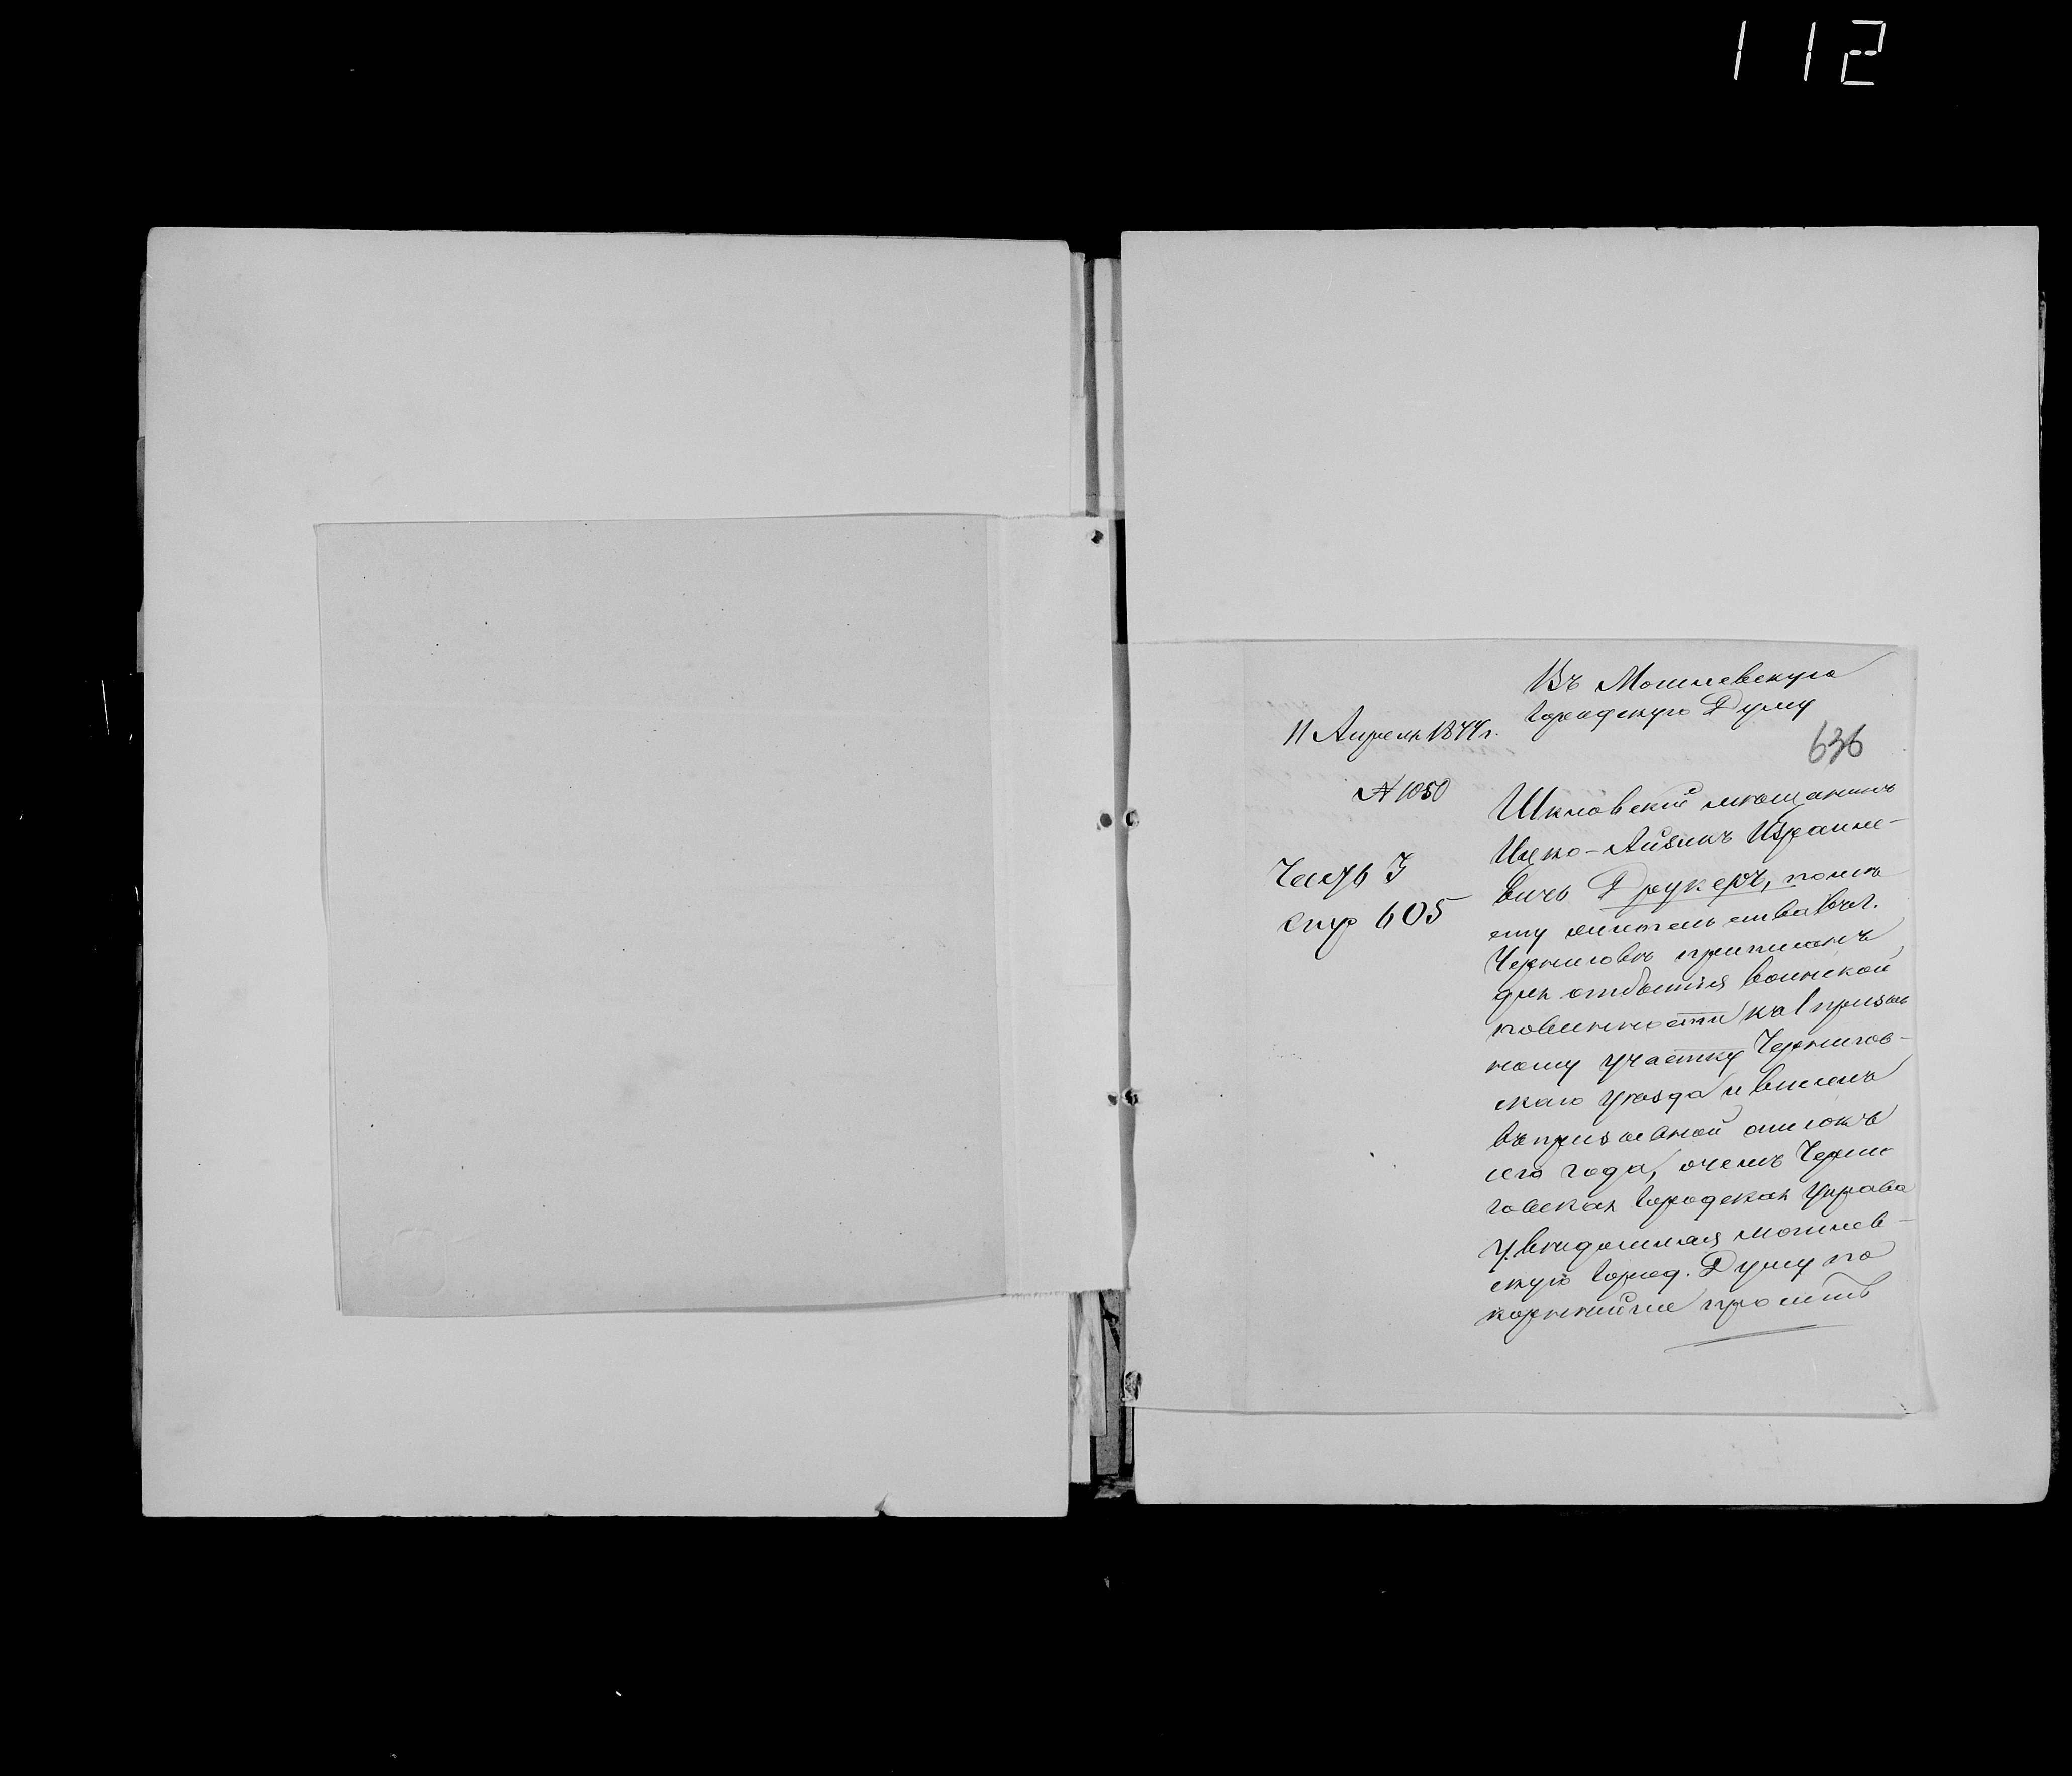 112
Въ Могилевскую
Городскую Думу
11 Апреля 1877г.
636
№ 1050
Часть I
стр 605
Шкловскій мѣщанинъ
Ицко-Айзикъ Израиле-
вичъ Друкеръ, по мѣс
ту жительства въ г.
Черниговѣ приписанъ
для отбытія воинской
повинности къ 1 призыв
ному участку Чернигов-
скаго уѣзда и внесенъ
въ призывной списокъ
сего года, о чемъ Черни
говская Городская Управа
увѣдомляя Могилев-
скую Город. Думу по
корнѣйше проситъ